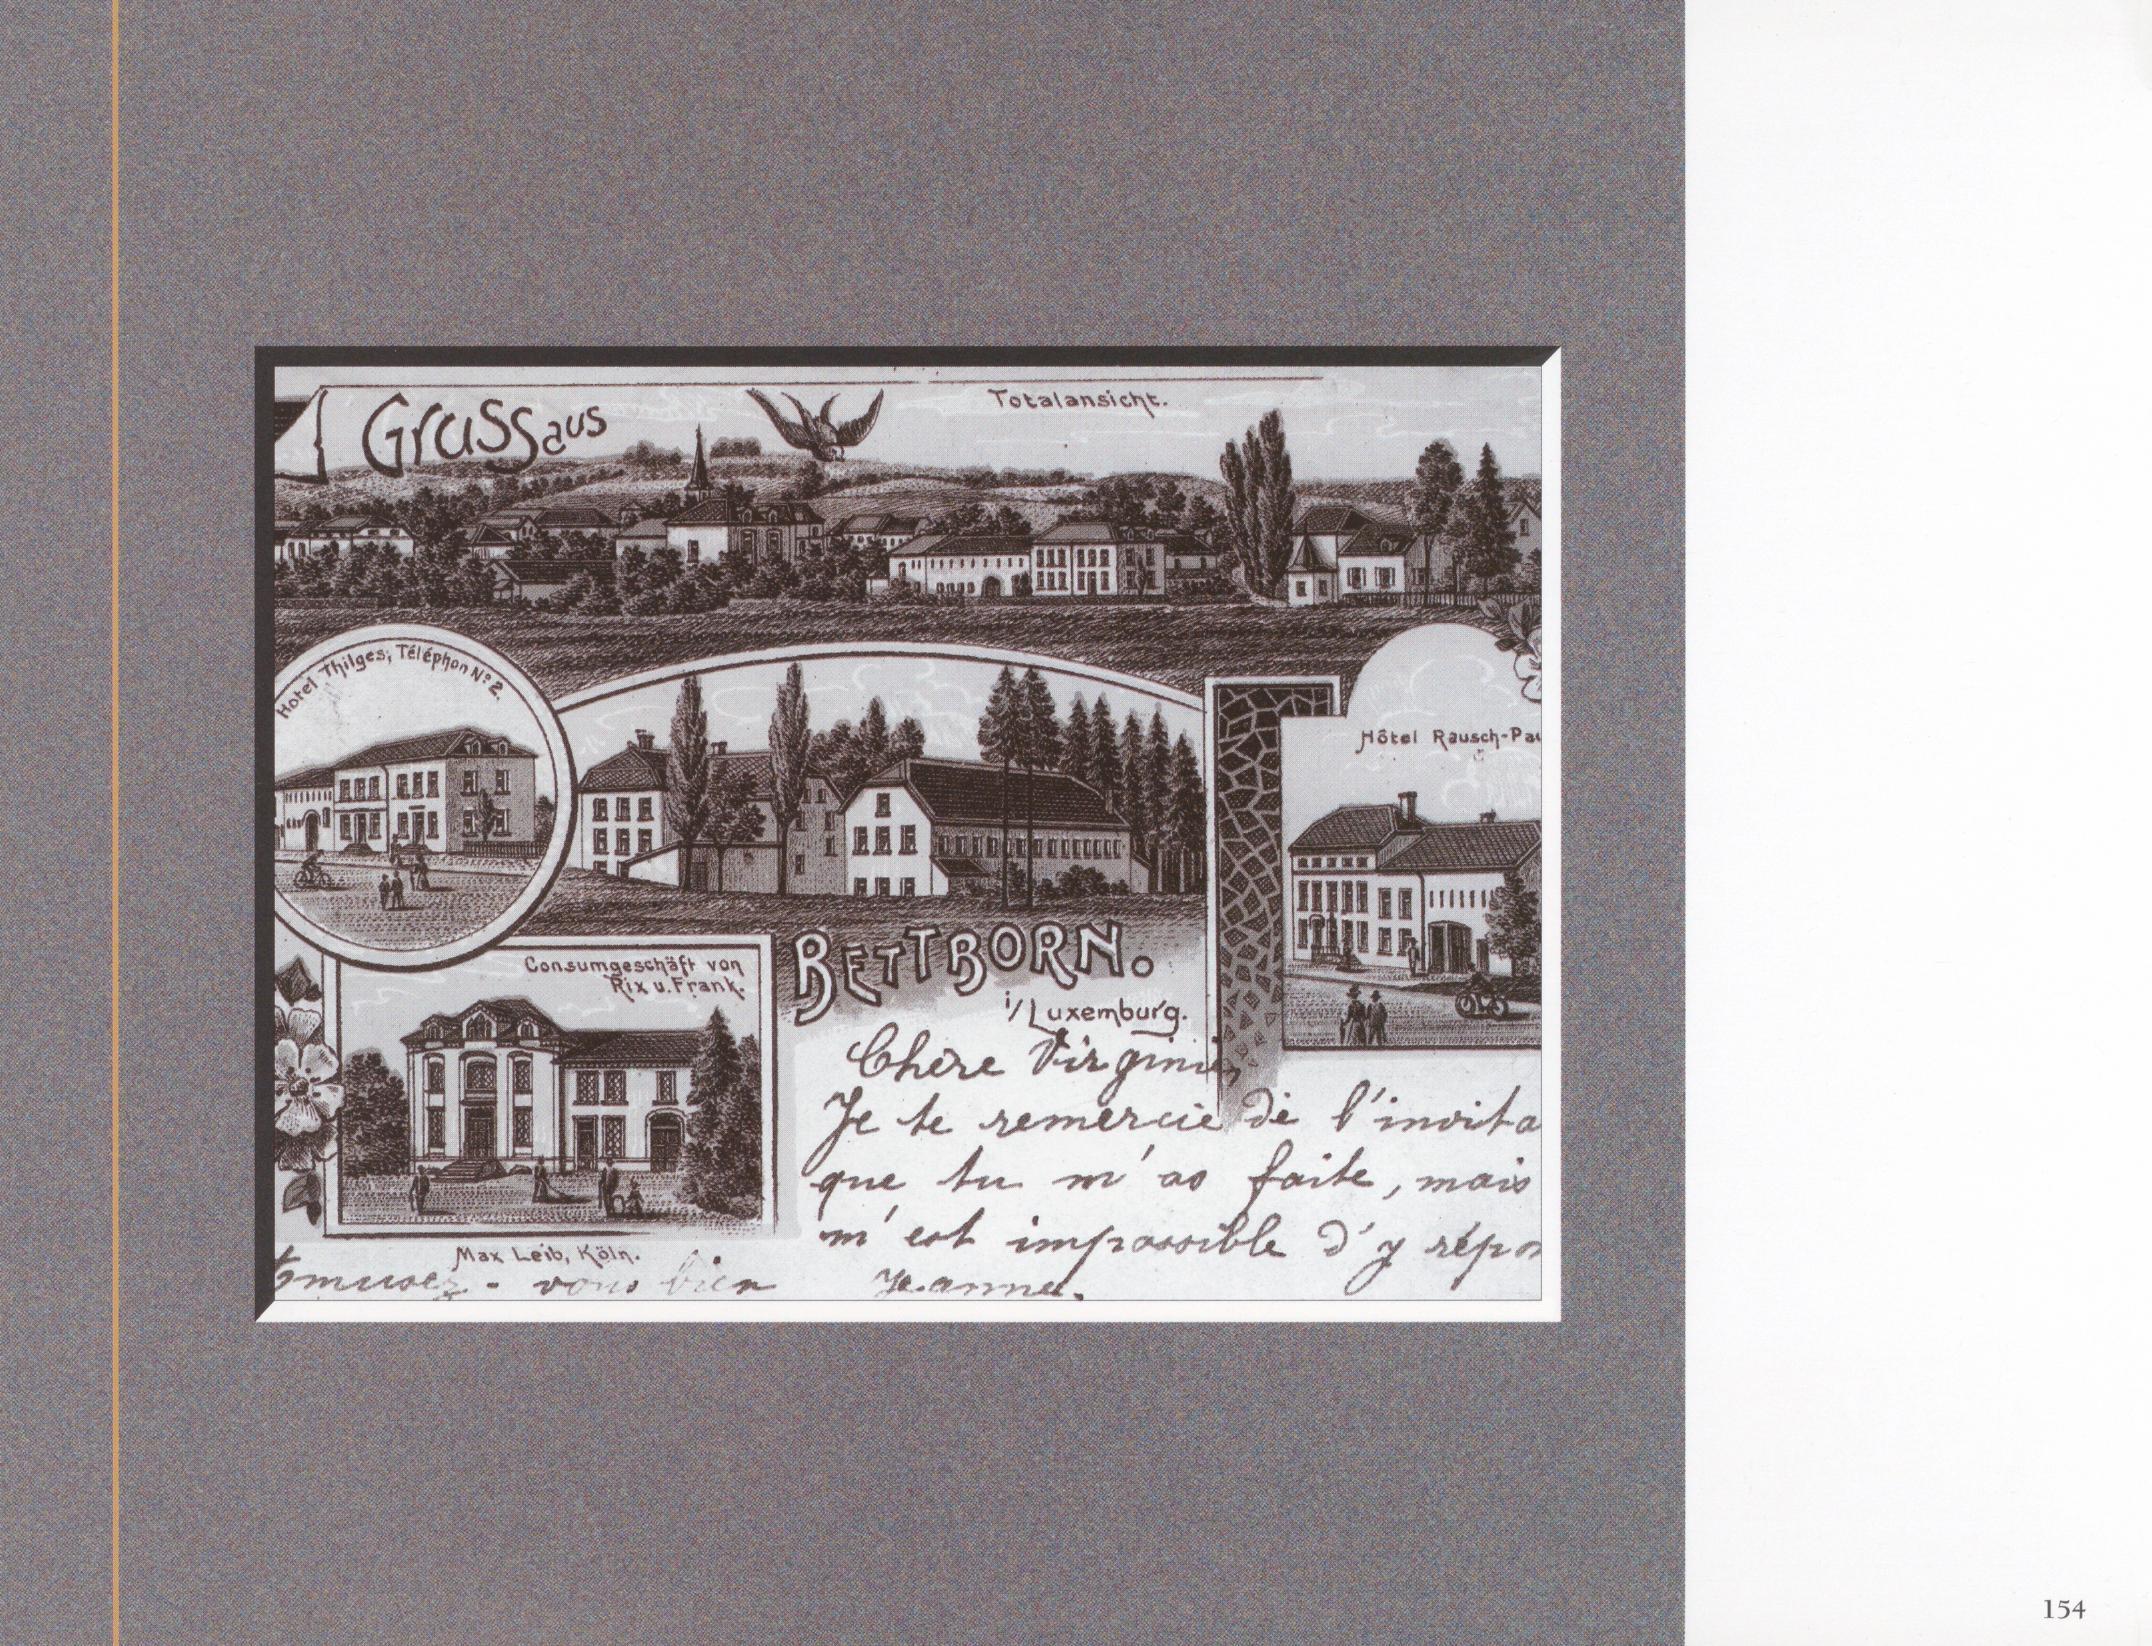 Gruss aus
Totalansicht.
Hotel Thilges, Téléphon No 2.
Hôtel Rausch-Pau
Consumgeschäft von
Rix u. Frank.
BETTBORN.
i/Luxemburg.
Chère Virginie,
Je te remercie de l'invita
que tu m'as faite, mais
m'est impossible d'y répon
Max Leib, Köln.
Amusez-vous bien Jeanne.
154